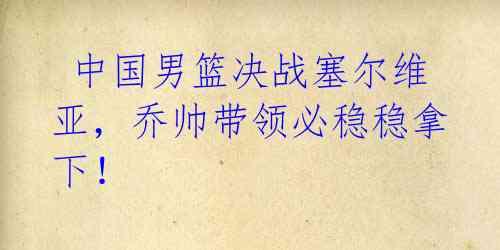 中国男篮决战塞尔维
亚，乔帅带领必稳稳拿
下！